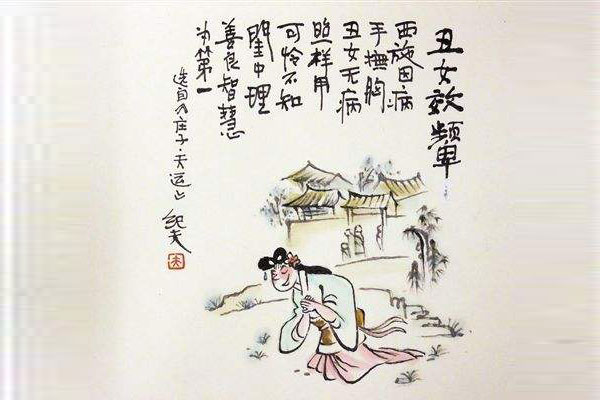 丑女效颦
西施因病
手撫胸
丑女无病
照样用
可怜不知
閨中理
善良智慧
为第一
选自《庄子·天运》
纪夫